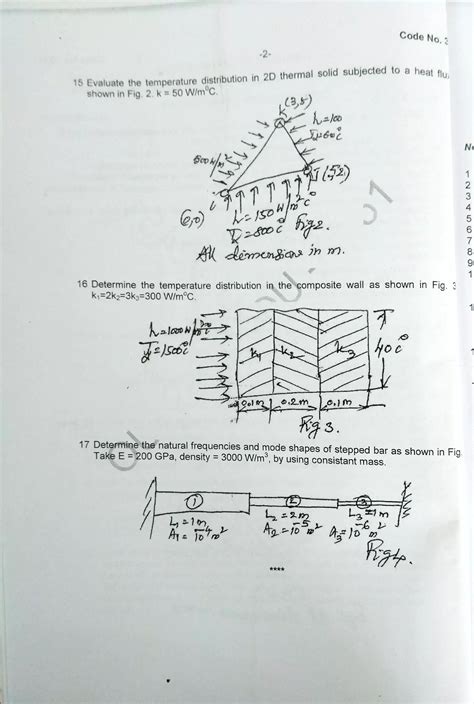 Code No. 3
-2-
15 Evaluate the temperature distribution in 2D thermal solid subjected to a heat flu
shown in Fig. 2. k = 50 W/m⁰C.
k (3,5)
h=100
T=60°C
500 W/m²
(5,2)
i
(0,0)
h=150 W/m²°C
T=800°C
Fig2.
All dimensions in m.
16 Determine the temperature distribution in the composite wall as shown in Fig. 3
k₁=2k₂=3k₃=300 W/m⁰C.
h=1000 W/m²°C
T=1500°C
k₁
k₂
k₃
40°C
0.1m
0.2m
0.1m
Fig 3.
17 Determine the natural frequencies and mode shapes of stepped bar as shown in Fig
Take E = 200 GPa, density = 3000 W/m³, by using consistant mass.
1
2
3
L₁=1m
A₁=10⁻⁴m²
L₂=2m
A₂=10⁻⁵m²
L₃=1m
A₃=10⁻⁶m²
Fig4.
****
N
1
2
3
4
5
6
7
8
9
1